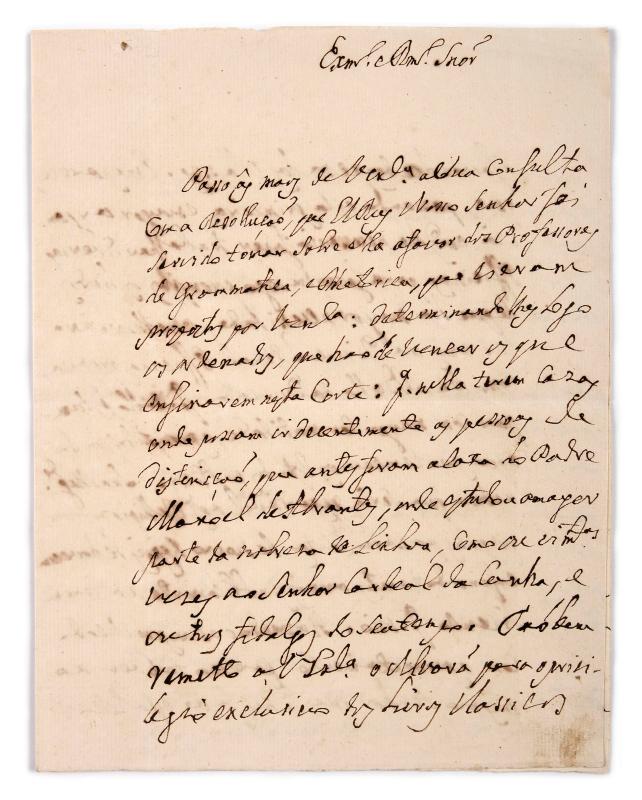 Exm.º e Rm.º Snor
Passo ás mãos de V Ex.ª a dita Consulta
Com a Resolluçaõ, que ElRey Nosso Senhor foi
servido tomar sobre ella a favor dos Professores
de Grammatica, e Rhetorica, que vieram
propostos por V Ex.ª: determinando lhes logo
os ordenados, que haõ de vencer os que
ensinarem nesta Corte: p.ª nella terem Cazas
onde possam ir decentemente as pessoas de
distinçaõ, que antes foram a Caza do Padre
Manoel de Abrantes, onde estudou a mayor
parte da nobreza de Lisboa, Como ouvi m.tas
vezes ao Senhor Cardeal da Cunha, e
outros fidalgos do seu tempo. Tabbem
remetto a V Ex.ª o Alvará para o privi-
legio exclusivo dos Livros Classicos